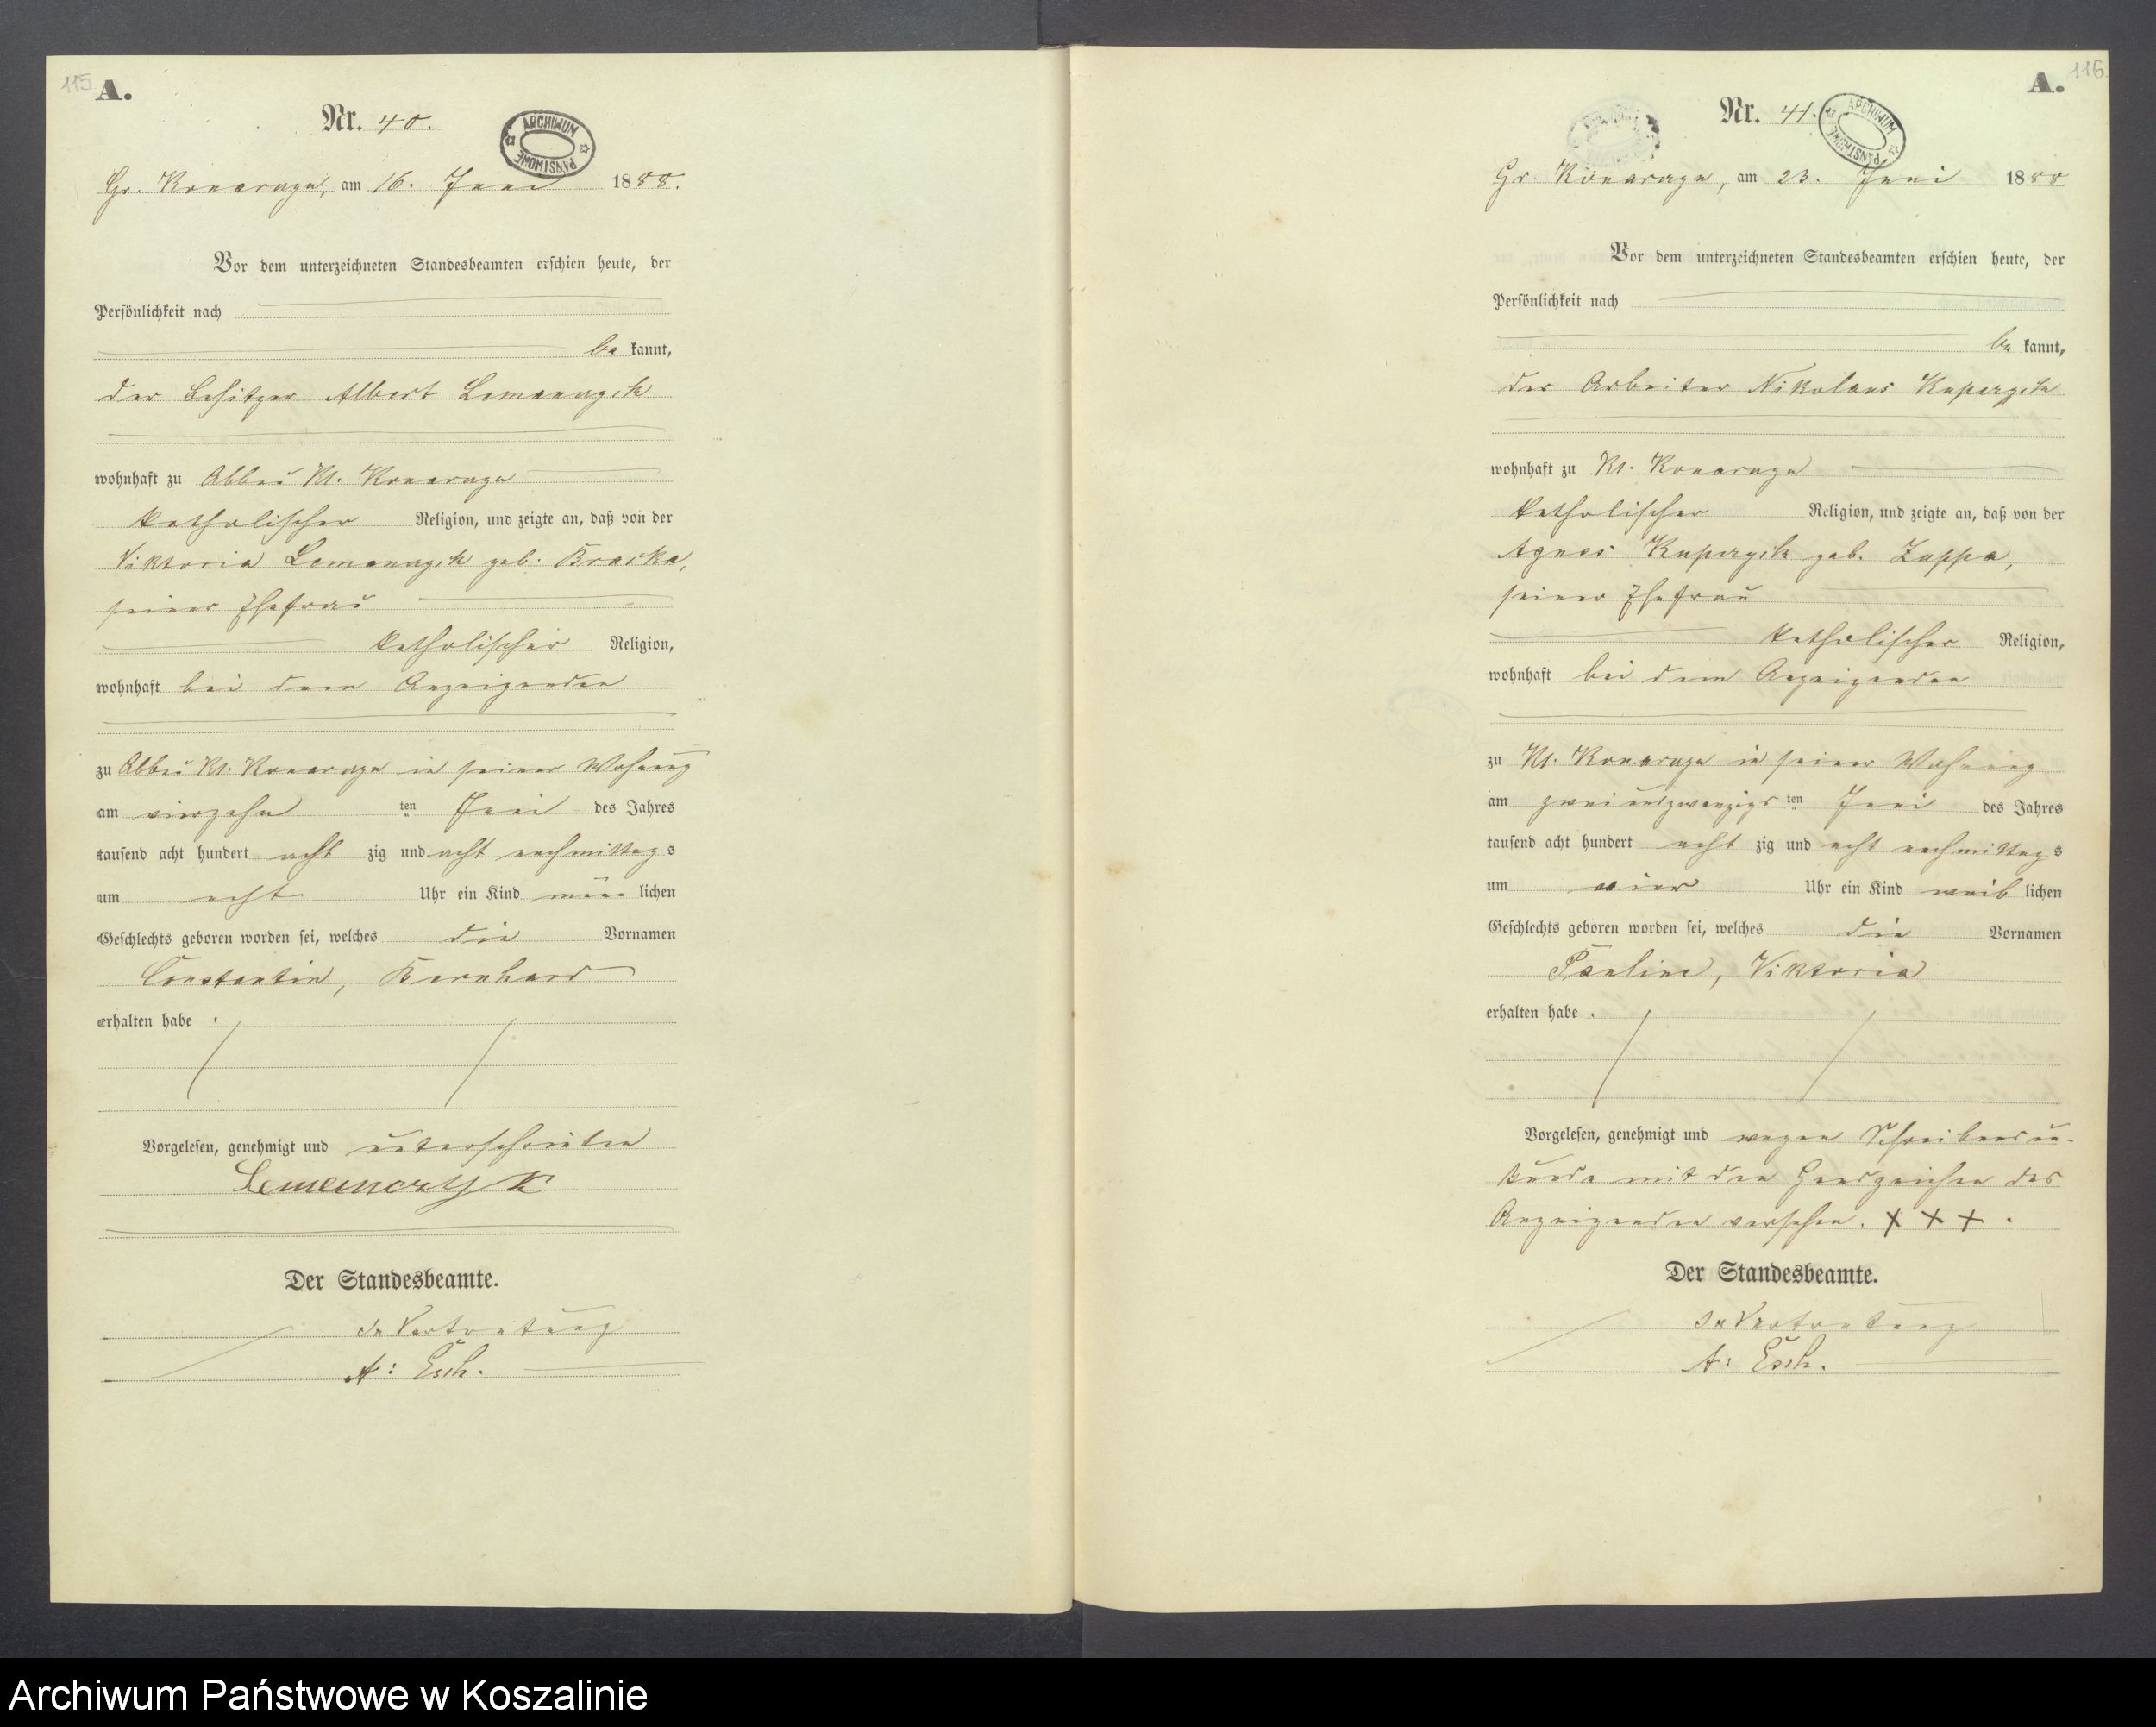 115
A.
Nr. 40.
ARCHIWUM PAŃSTWOWE
Gr. Konarczyn, am 16. Juni 1888.
Vor dem unterzeichneten Standesbeamten erschien heute, der
Persönlichkeit nach
be kannt,
der Besitzer Albert Lemanczyk
wohnhaft zu Abbau Kl. Konarczyn
katholischer Religion, und zeigte an, daß von der
Viktoria Lemanczyk geb. Braska,
seiner Ehefrau
katholischer Religion,
wohnhaft bei dem Anzeigenden
zu Abbau Kl. Konarczyn in seiner Wohnung
am vierzehn ten Juni des Jahres
tausend acht hundert acht zig und acht nachmittags
um acht Uhr ein Kind männ lichen
Geschlechts geboren worden sei, welches die Vornamen
Constantin, Bernhard
erhalten habe.
Vorgelesen, genehmigt und unterschrieben
Lemanczyk
Der Standesbeamte.
In Vertretung
A: Esch.
116
A.
Nr. 41.
ARCHIWUM PAŃSTWOWE
Gr. Konarczyn, am 23. Juni 1888
Vor dem unterzeichneten Standesbeamten erschien heute, der
Persönlichkeit nach
be kannt,
der Arbeiter Nikolaus
wohnhaft zu Kl. Konarczyn
katholischer Religion, und zeigte an, daß von der
Agnes geb. Zuppa,
seiner Ehefrau
katholischer Religion,
wohnhaft bei dem Anzeigenden
zu Kl. Konarczyn in seiner Wohnung
am zweiundzwanzigs ten Juni des Jahres
tausend acht hundert acht zig und acht nachmittags
um vier Uhr ein Kind weib lichen
Geschlechts geboren worden sei, welches die Vornamen
Pauline, Viktoria
erhalten habe.
Vorgelesen, genehmigt und wegen Schreibensun-
kunde mit den Handzeichen des
Anzeigenden versehen. X X X.
Der Standesbeamte.
In Vertretung
A: Esch.
Archiwum Państwowe w Koszalinie